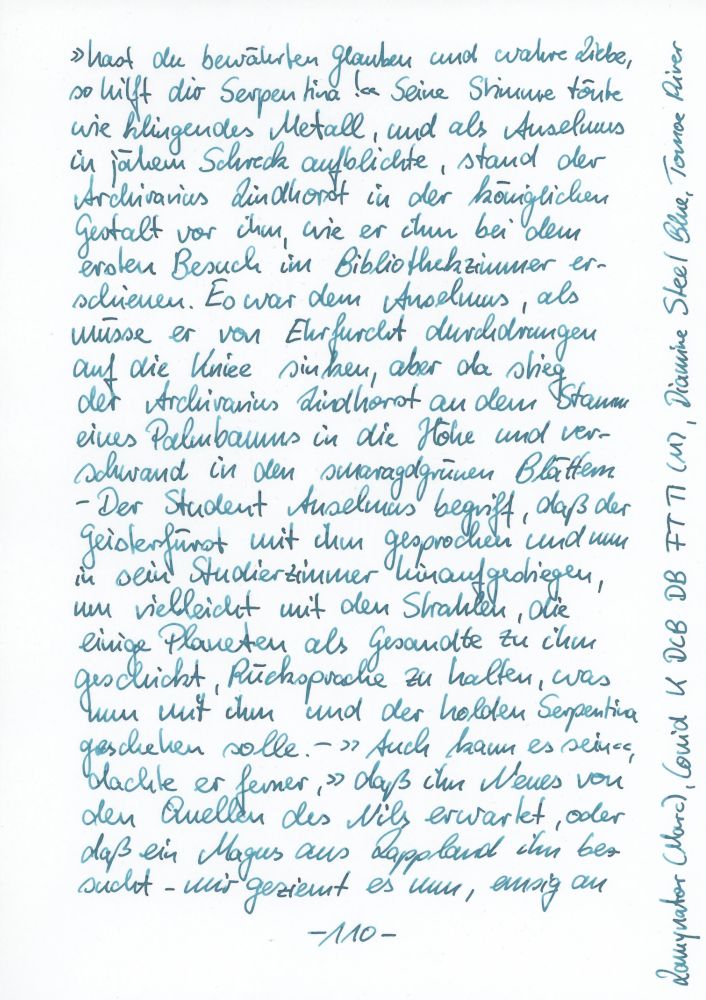 »hast du bewährten Glauben und wahre Liebe,
so hilft dir Serpentina!« Seine Stimme tönte
wie klingendes Metall, und als Anselmus
in jähem Schreck aufblickte, stand der
Archivarius Lindhorst in der königlichen
Gestalt vor ihm, wie er ihm bei dem
ersten Besuch im Bibliothekzimmer er-
schienen. Es war dem Anselmus, als
müsse er von Ehrfurcht durchdrungen
auf die Kniee sinken, aber da stieg
der Archivarius Lindhorst an dem Stamm
eines Palmbaums in die Höhe und ver-
schwand in den smaragdgrünen Blättern
– Der Student Anselmus begriff, daß der
Geisterfürst mit ihm gesprochen und nun
in sein Studierzimmer hinaufgestiegen,
um vielleicht mit den Strahlen, die
einige Planeten als Gesandte zu ihm
geschickt, Rücksprache zu halten, was
nun mit ihm und der holden Serpentina
geschehen solle. – »Auch kann es sein«,
dachte er ferner, »daß ihn Neues von
den Quellen des Nils erwartet, oder
daß ein Magus aus Lappland ihn be-
sucht – mir geziemt es nun, emsig an
-110-
Lamynator (Marc), Conid K DCB DB FT TI (M), Diamine Steel Blue, Tomoe River